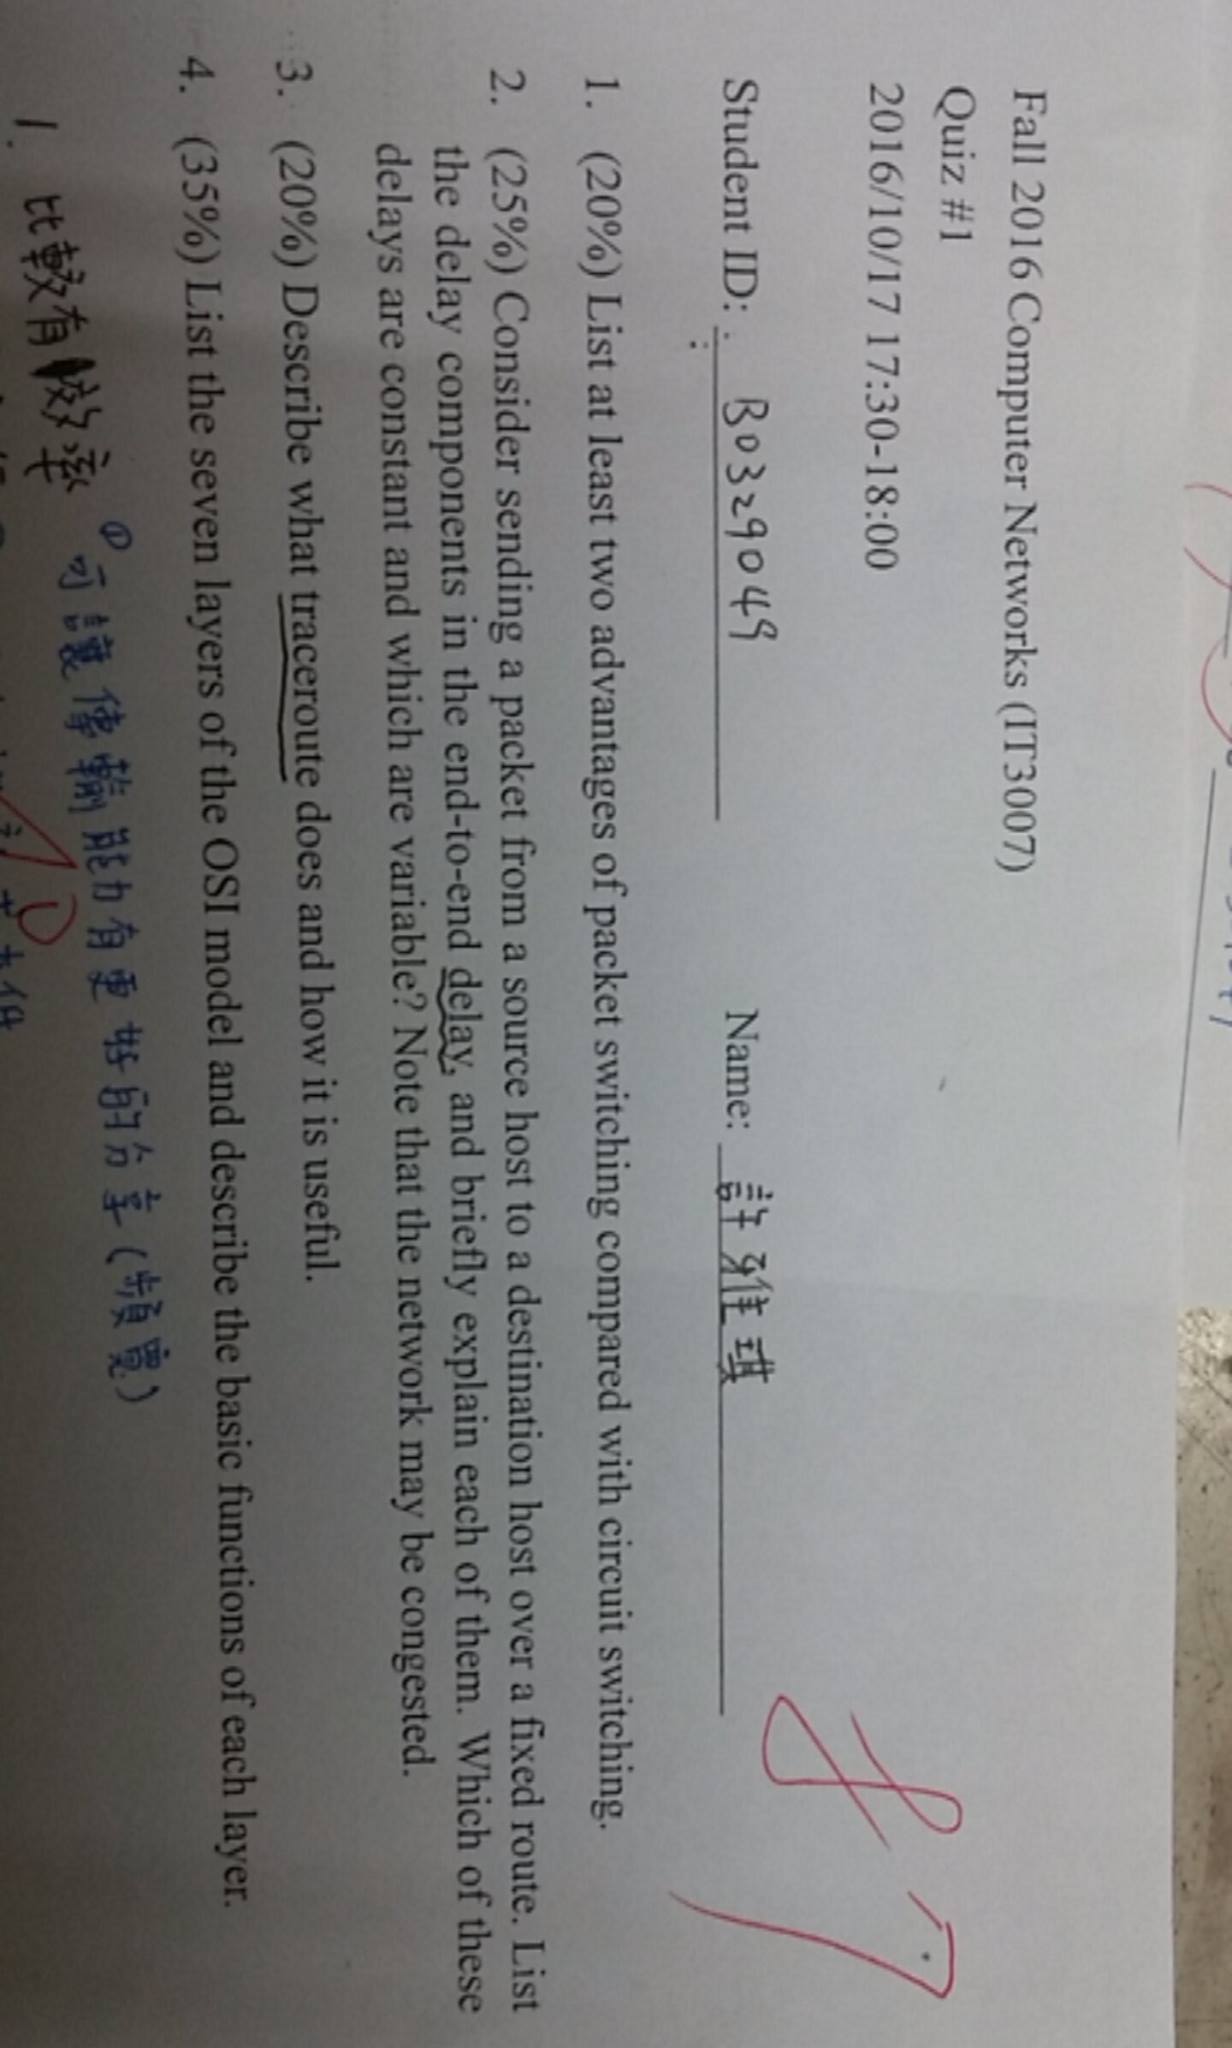 Fall 2016 Computer Networks (IT3007)
Quiz #1
2016/10/17 17:30-18:00
Student ID: B0329049 Name: 許雅琪
87
1. (20%) List at least two advantages of packet switching compared with circuit switching.
2. (25%) Consider sending a packet from a source host to a destination host over a fixed route. List
the delay components in the end-to-end delay, and briefly explain each of them. Which of these
delays are constant and which are variable? Note that the network may be congested.
3. (20%) Describe what traceroute does and how it is useful.
4. (35%) List the seven layers of the OSI model and describe the basic functions of each layer.
① 可讓傳輸能力有更好的分享(頻寬)
1. 比較有效率